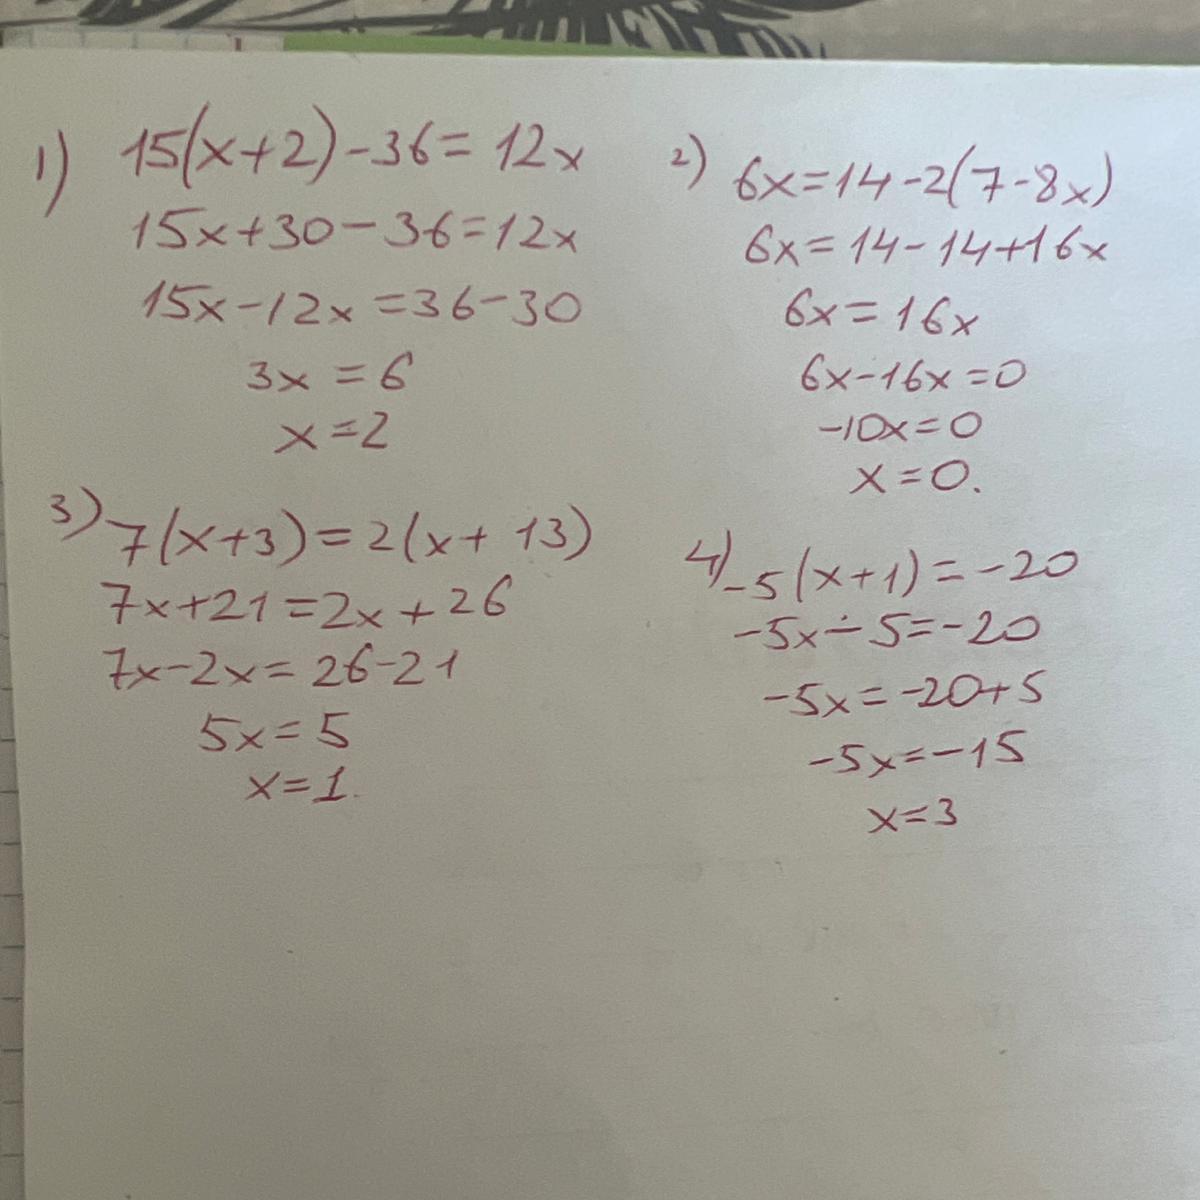 1) 15(x+2)-36=12x
15x+30-36=12x
15x-12x=36-30
3x=6
x=2
2) 6x=14-2(7-8x)
6x=14-14+16x
6x=16x
6x-16x=0
-10x=0
x=0.
3) 7(x+3)=2(x+13)
7x+21=2x+26
7x-2x=26-21
5x=5
x=1.
4) -5(x+1)=-20
-5x-5=-20
-5x=-20+5
-5x=-15
x=3